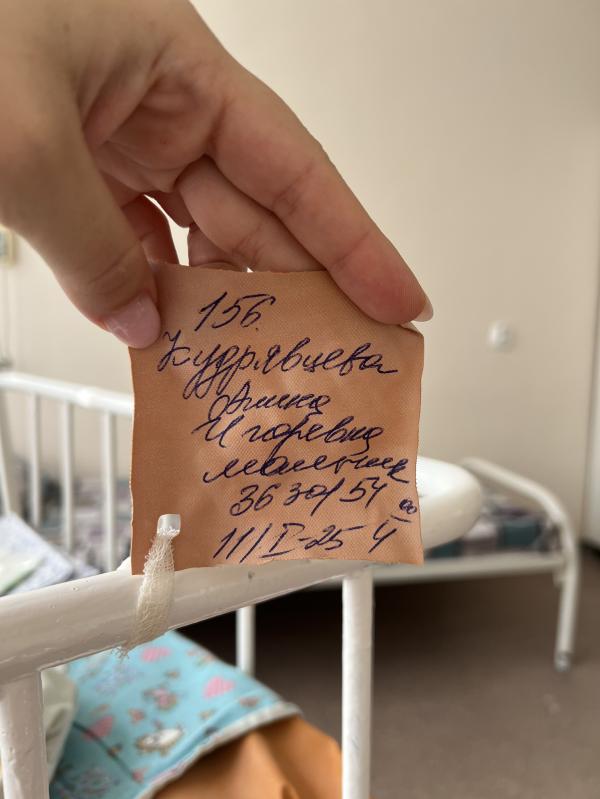 156.
Кудрявцева
Алина
Игоревна
мальчик
3630/54
11/I-25 4⁰⁰